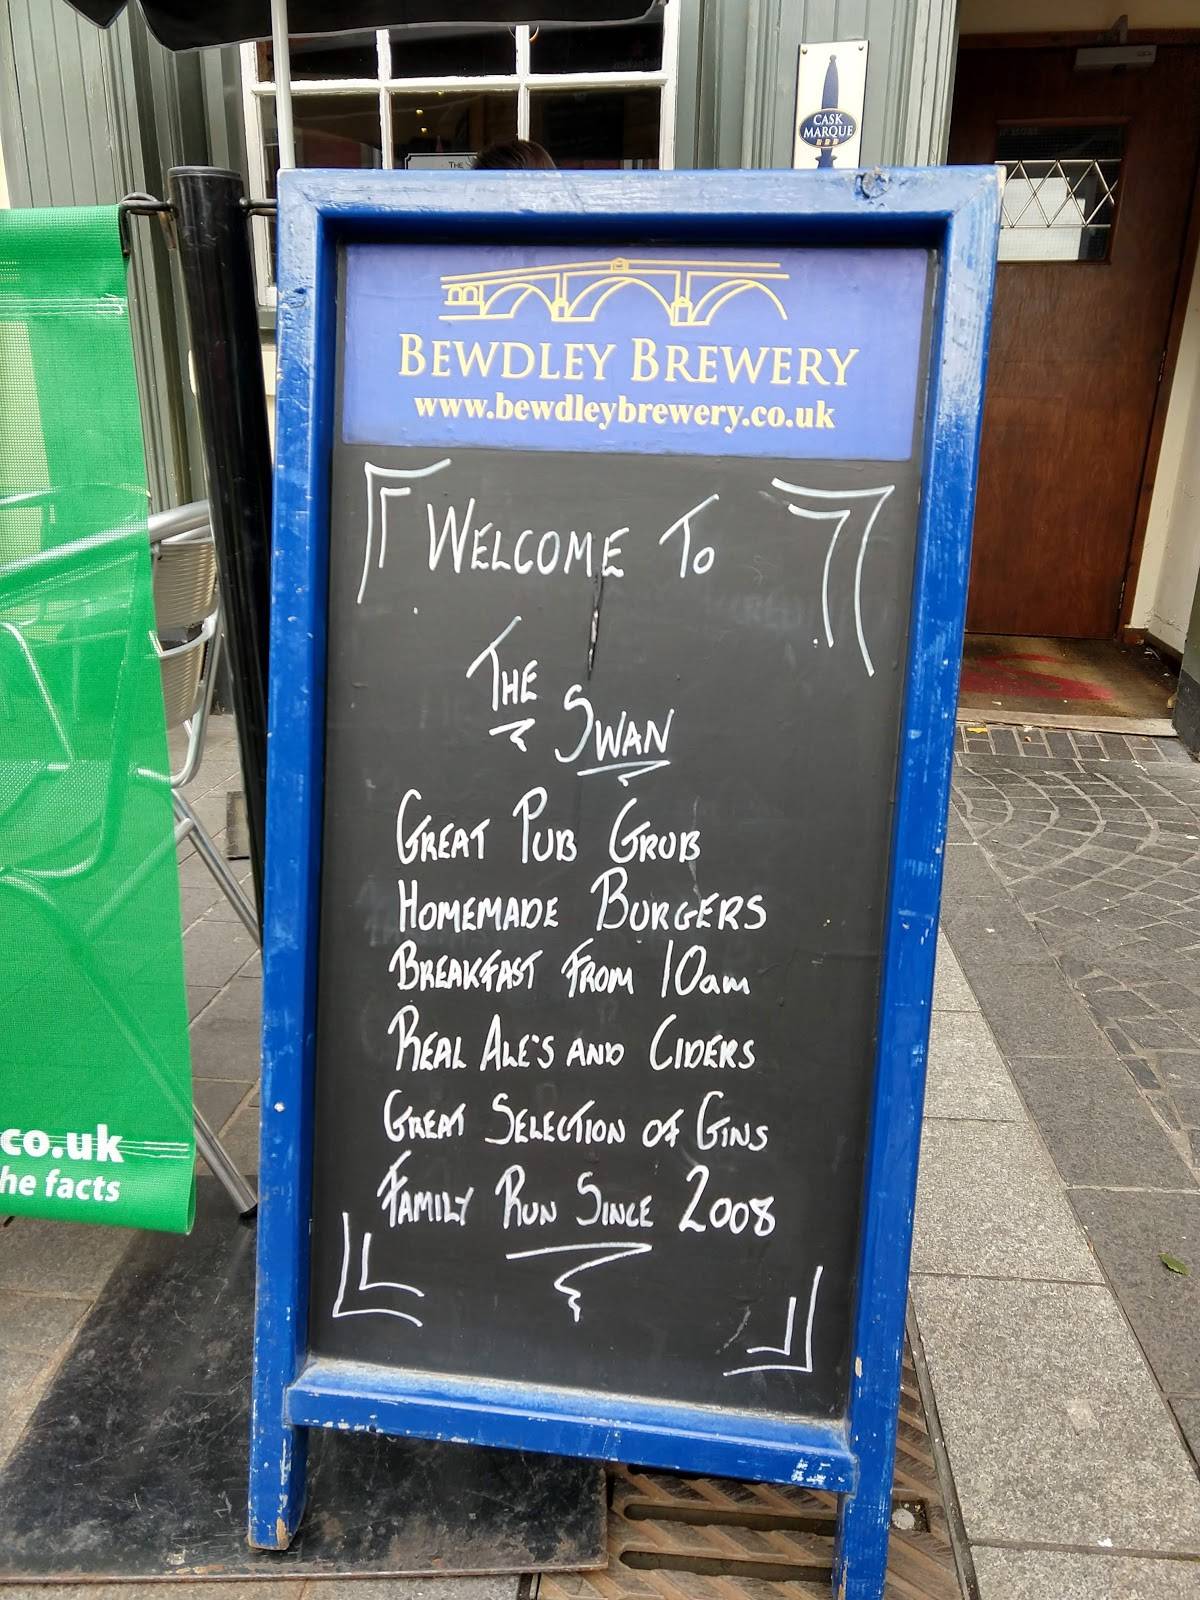 CASK
MARQUE
THE
BEWDLEY BREWERY
www.bewdleybrewery.co.uk
WELCOME TO
THE
SWAN
GREAT PUB GRUB
HOMEMADE BURGERS
BREAKFAST FROM 10am
REAL ALE'S AND CIDERS
GREAT SELECTION OF GINS
FAMILY RUN SINCE 2008
.co.uk
he facts